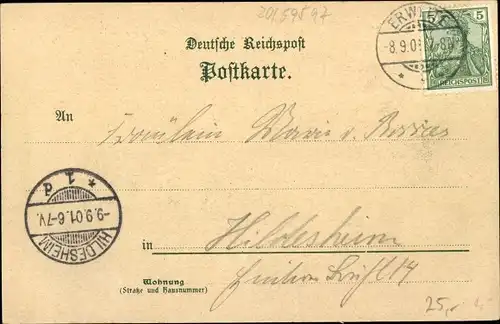 20159597
ERWITTE
8.9.01
5 5
REICHSPOST
Deutsche Reichspost
Postkarte.
An Fräulein Marie v.
* 1 d
-9.9.01.6-7V.
HILDESHEIM
in Hildesheim
Wohnung
(Straße und Hausnummer)
14
25,-